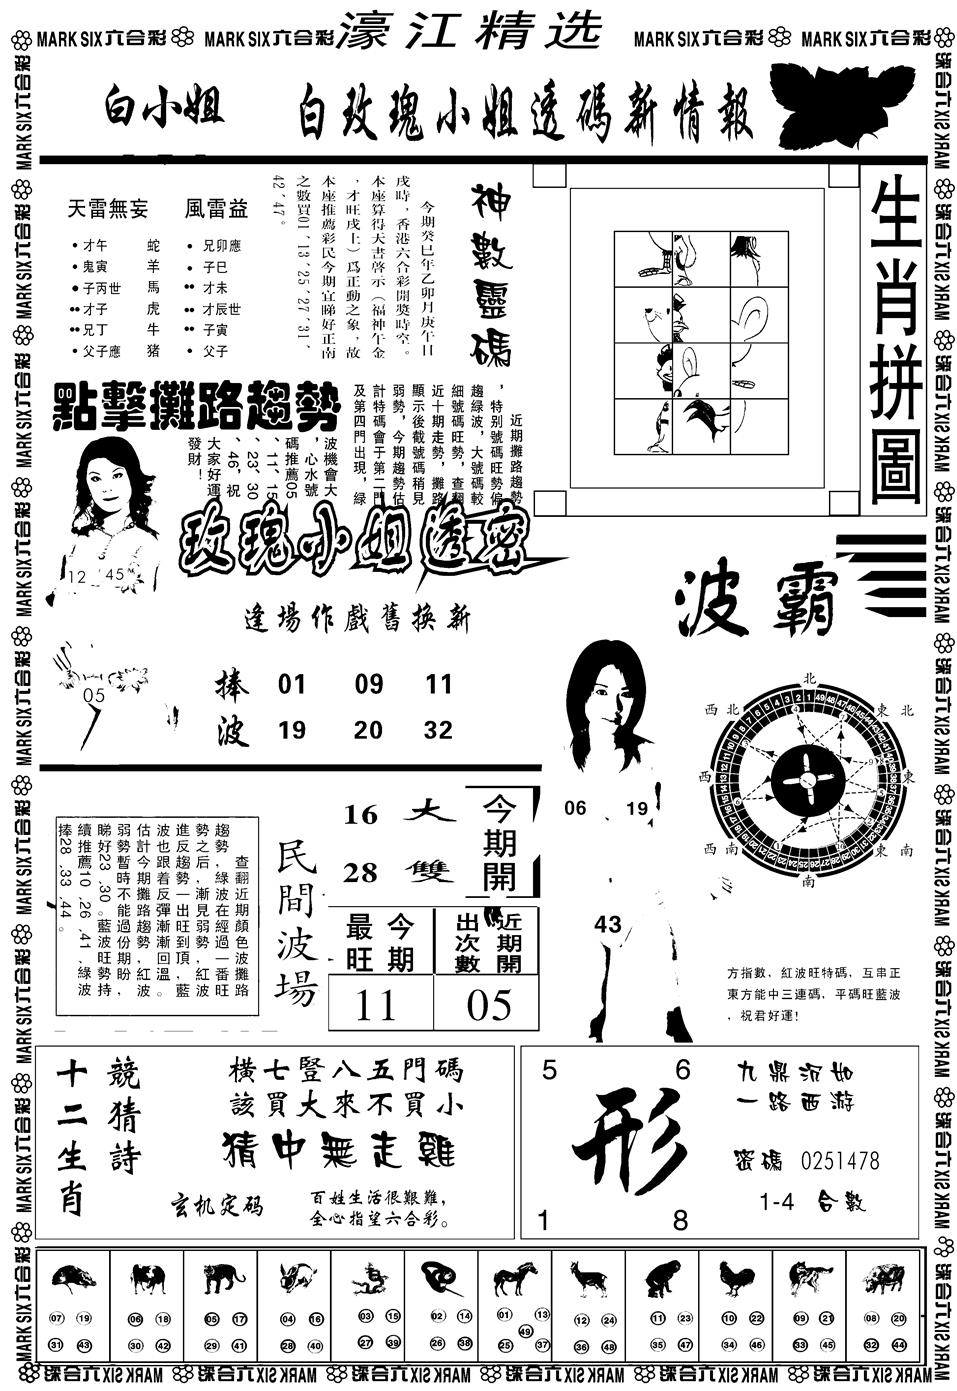 濠江精选
MARK SIX六合彩 MARK SIX六合彩 MARK SIX六合彩 MARK SIX六合彩
白小姐 白玫瑰小姐透碼新情報
天雷無妄 風雷益
才午 蛇 兄卯應
鬼寅 羊 子巳
子丙世 馬 才未
才子 虎 才辰世
兄丁 牛 子寅
父子應 猪 父子
神數靈碼
今期癸巳年乙卯月庚午日
戌時，香港六合彩開獎時空。
本座算得天書啓示（福神午金
，才旺戌土）爲正動之象，故
本座推薦彩民今期宜睇好正南
之數買01、13、25、27、31、
42、47。
生肖拼圖
點擊攤路趨勢
近期攤路趨勢
，特别號碼旺勢偏
趨綠波，大號碼較
細號碼旺勢，查翻
近十期走勢，攤路
顯示後截號碼稍見
弱勢，今期趨勢估
計特碼會于第二門
及第四門出現，綠
波機會大
，心水號
碼推薦05
、11、15
、23、30
、46，祝
大家好運
發財！
12 45
05
玫瑰小姐透密
逢場作戲舊換新
捧 01 09 11
波 19 20 32
波霸
北
西北 東北
西 東
西南 東南
南
06 19
43
方指數，紅波旺特碼，互串正
東方能中三連碼，平碼旺藍波
，祝君好運!
查翻近期顏色波攤路
趨勢，綠波在經過一番旺
勢之后，漸見弱勢，紅波
進反趨勢一出旺到頂，藍
波也跟着反彈漸漸回溫。
估計今期攤路趨勢，紅波
弱勢暫時不能過份期盼，
睇好23、30。藍波旺勢持
續推薦10、26、41，綠波
捧28、33、44。
民間波場
16 大
28 雙
今期開
最旺 今期
出次數 近期開
11 05
十二生肖
競猜詩
横七豎八五門碼
該買大來不買小
猜中無走雞
玄机定码
百姓生活很艱難，
全心指望六合彩。
5 6
形
1 8
九鼎沉如
一路西游
密碼 0251478
1-4 合數
07 19 06 18 05 17 04 16 03 15 02 14 01 13 12 24 11 23 10 22 09 21 08 20
49
31 43 30 42 29 41 28 40 27 39 26 38 25 37 36 48 35 47 34 46 33 45 32 44
MARK SIX六合彩 MARK SIX六合彩 MARK SIX六合彩 MARK SIX六合彩 MARK SIX六合彩